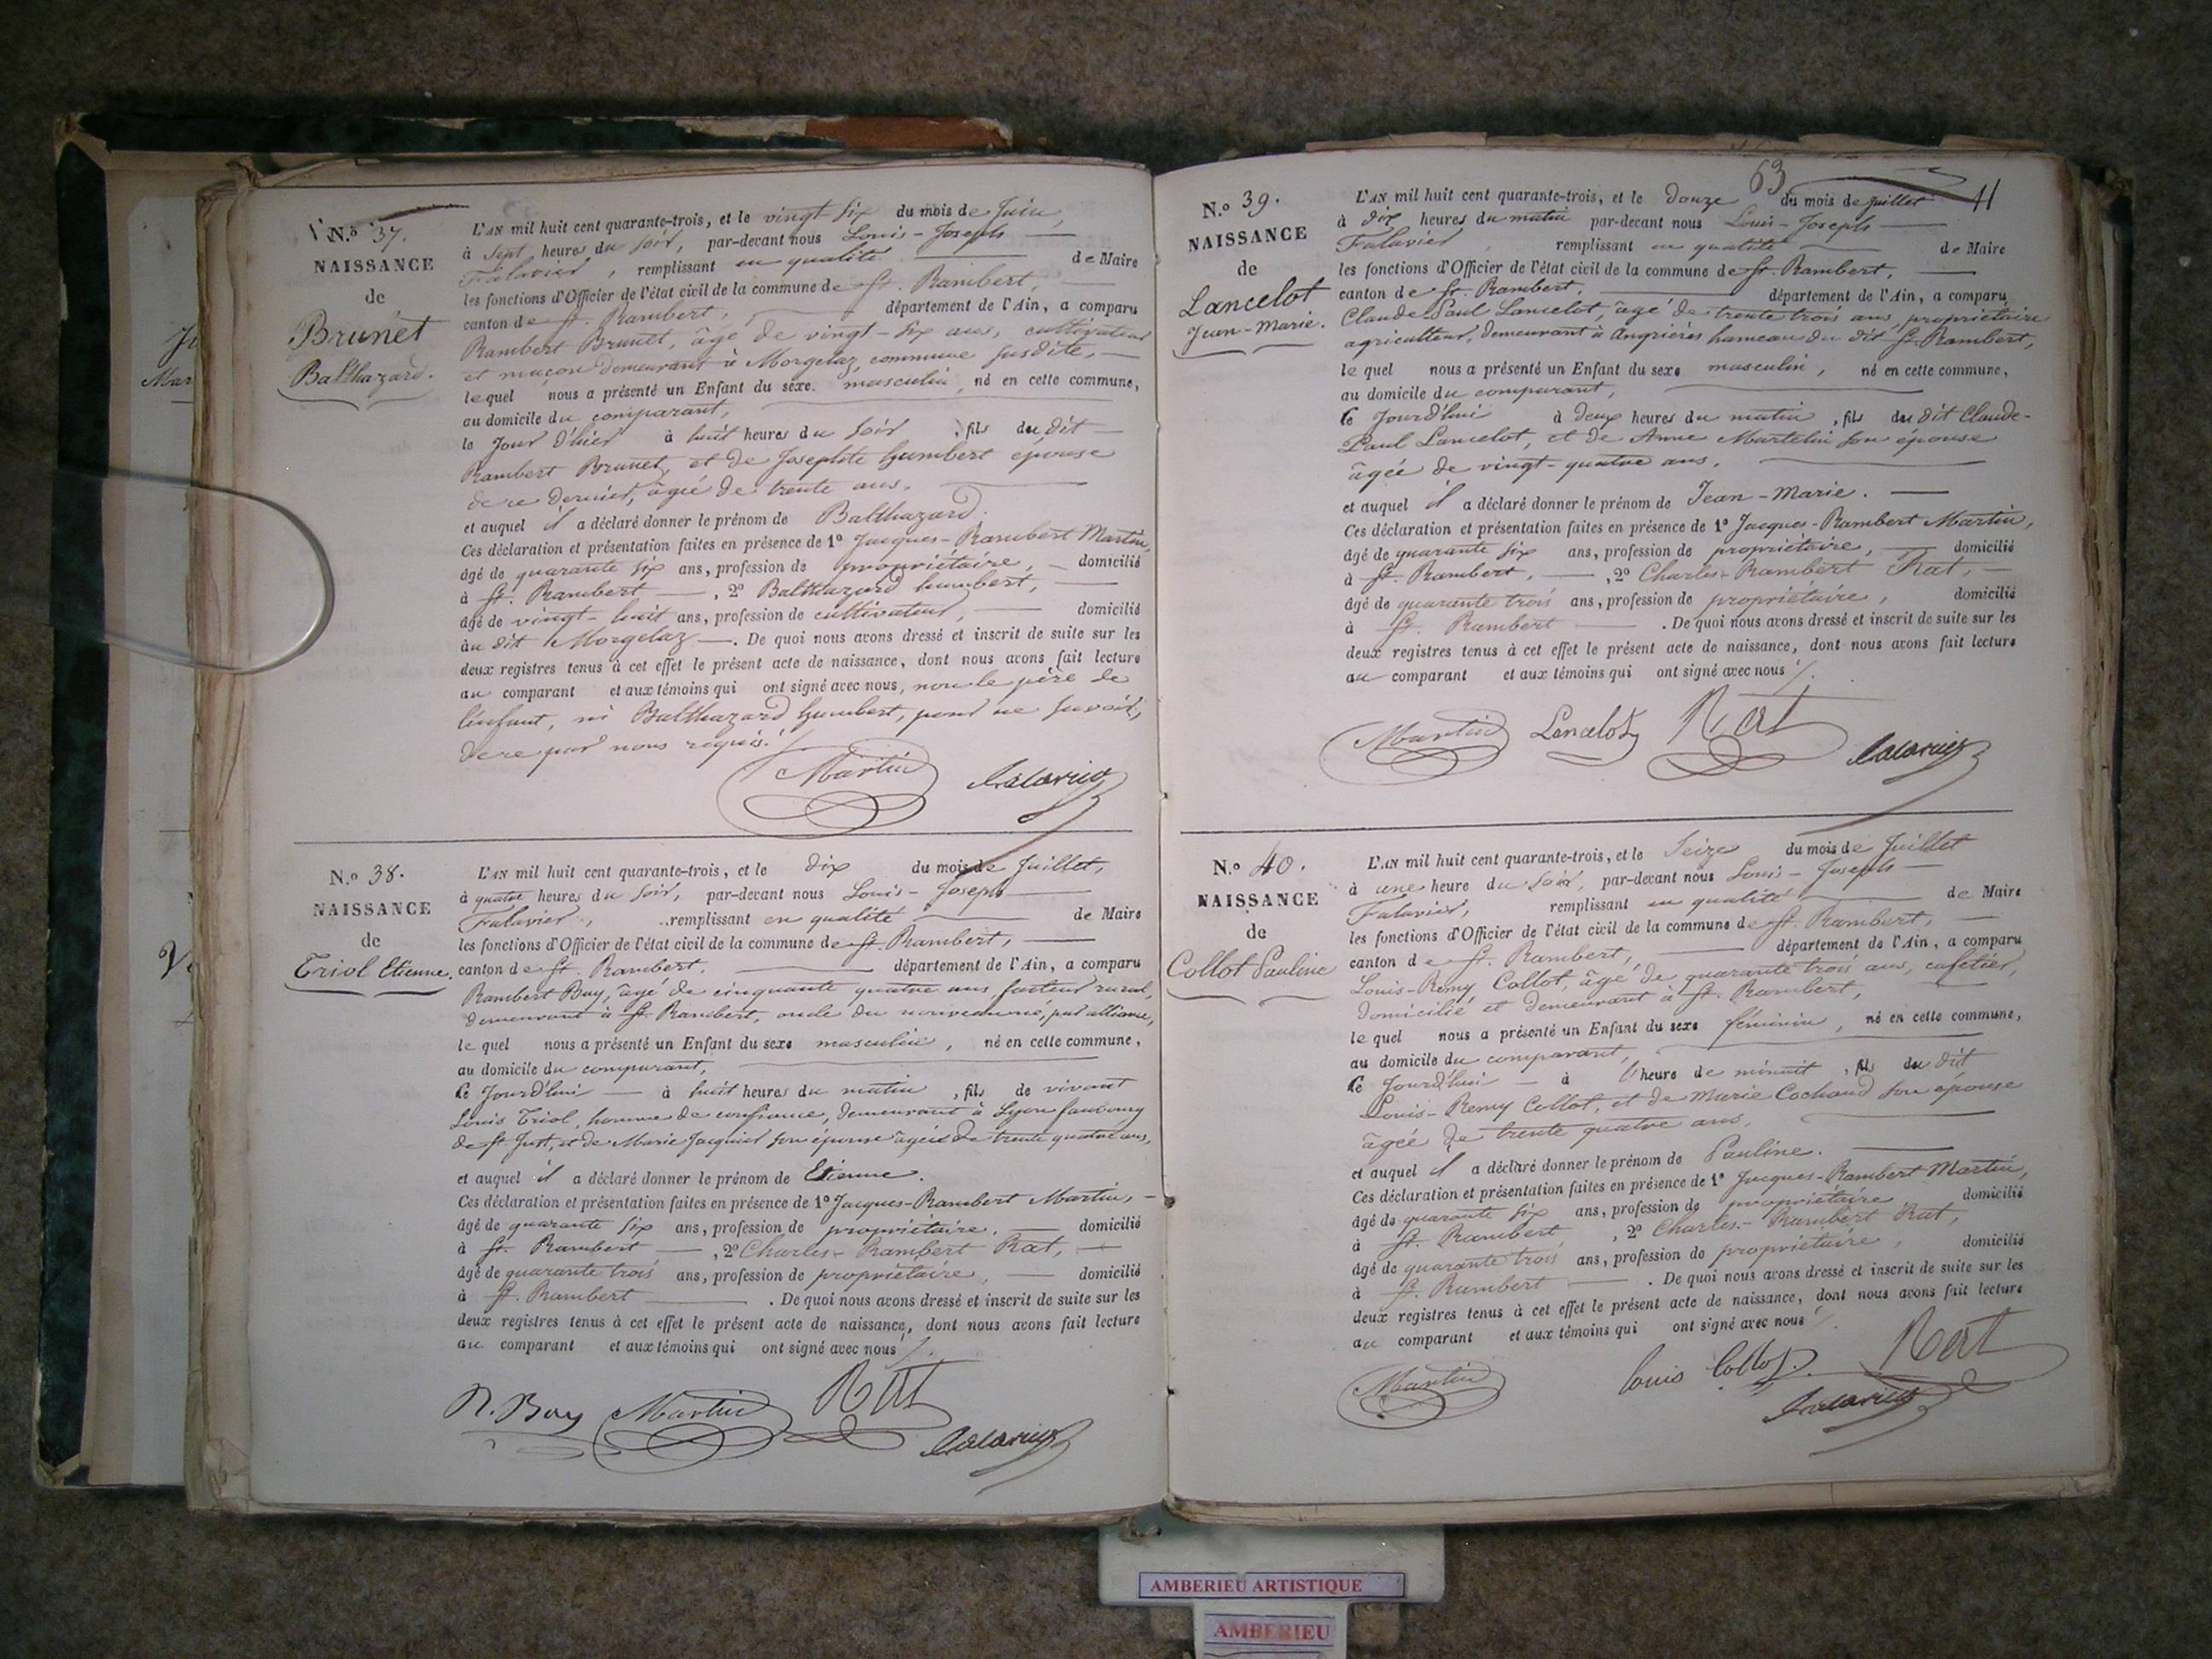 N.º 37.
NAISSANCE
de
Brunet
Balthazard.
L'AN mil huit cent quarante-trois, et le vingt-six du mois de Juin,
à Sept heures du soir, par-devant nous Louis-Joseph
Falavier, remplissant en qualité de Maire
les fonctions d'Officier de l'état civil de la commune de St. Rambert,
canton de St. Rambert, département de l'Ain, a comparu
Rambert Brunet, âgé de vingt-six ans, cultivateur
et maçon demeurant à Morgelaz, commune susdite,
lequel nous a présenté un Enfant du sexe masculin, né en cette commune,
au domicile du comparant,
le Jour d'hier à huit heures du soir, fils du dit
Rambert Brunet, et de Josephte humbert épouse
de ce dernier, âgée de trente ans.
et auquel il a déclaré donner le prénom de Balthazard.
Ces déclaration et présentation faites en présence de 1º Jacques-Rambert Martin,
âgé de quarante six ans, profession de propriétaire, domicilié
à St. Rambert, 2º Balthazard humbert,
âgé de vingt-huit ans, profession de cultivateur, domicilié
au dit Morgelaz. De quoi nous avons dressé et inscrit de suite sur les
deux registres tenus à cet effet le présent acte de naissance, dont nous avons fait lecture
au comparant et aux témoins qui ont signé avec nous, non le père de
l'enfant, ni Balthazard humbert, pour ne savoir,
de ce par nous requis.
Martin Falavier
N.º 38.
NAISSANCE
de
Triol Etienne.
L'AN mil huit cent quarante-trois, et le dix du mois de Juillet,
à quatre heures du soir, par-devant nous Louis-Joseph
Falavier, remplissant en qualité de Maire
les fonctions d'Officier de l'état civil de la commune de St. Rambert,
canton de St. Rambert, département de l'Ain, a comparu
Rambert Buy, âgé de cinquante quatre ans, facteur rural,
demeurant à St. Rambert, oncle du nouveau né, par alliance,
lequel nous a présenté un Enfant du sexe masculin, né en cette commune,
au domicile du comparant,
ce Jourd'hui à huit heures du matin, fils de vivant
Louis Triol, homme de confiance, demeurant à Lyon faubourg
de St. Just, et de Marie Jacquier son épouse âgée de trente quatre ans,
et auquel il a déclaré donner le prénom de Etienne.
Ces déclaration et présentation faites en présence de 1º Jacques-Rambert Martin,
âgé de quarante six ans, profession de propriétaire, domicilié
à St. Rambert, 2º Charles-Rambert Rat,
âgé de quarante trois ans, profession de propriétaire, domicilié
à St. Rambert. De quoi nous avons dressé et inscrit de suite sur les
deux registres tenus à cet effet le présent acte de naissance, dont nous avons fait lecture
au comparant et aux témoins qui ont signé avec nous
R. Buy Martin Rat
Falavier
63
41
N.º 39.
NAISSANCE
de
Lancelot
Jean-Marie.
L'AN mil huit cent quarante-trois, et le Douze du mois de Juillet
à dix heures du matin par-devant nous Louis-Joseph
Falavier, remplissant en qualité de Maire
les fonctions d'Officier de l'état civil de la commune de St. Rambert,
canton de St. Rambert, département de l'Ain, a comparu
Claude Paul Lancelot, âgé de trente trois ans, propriétaire
agriculteur, demeurant à Angrières hameau du dit St. Rambert,
lequel nous a présenté un Enfant du sexe masculin, né en cette commune,
au domicile du comparant,
ce Jourd'hui à deux heures du matin, fils du dit Claude-
Paul Lancelot, et de Anne Martelin son épouse
âgée de vingt-quatre ans.
et auquel il a déclaré donner le prénom de Jean-Marie.
Ces déclaration et présentation faites en présence de 1º Jacques-Rambert Martin,
âgé de quarante six ans, profession de propriétaire, domicilié
à St. Rambert, 2º Charles-Rambert Rat,
âgé de quarante trois ans, profession de propriétaire, domicilié
à St. Rambert. De quoi nous avons dressé et inscrit de suite sur les
deux registres tenus à cet effet le présent acte de naissance, dont nous avons fait lecture
au comparant et aux témoins qui ont signé avec nous
Martin Lancelot Rat
Falavier
N.º 40.
NAISSANCE
de
Collot Pauline
L'AN mil huit cent quarante-trois, et le Seize du mois de Juillet
à une heure du soir, par-devant nous Louis-Joseph
Falavier, remplissant en qualité de Maire
les fonctions d'Officier de l'état civil de la commune de St. Rambert,
canton de St. Rambert, département de l'Ain, a comparu
Louis-Remy Collot, âgé de quarante trois ans, cafetier,
domicilié et demeurant à St. Rambert,
lequel nous a présenté un Enfant du sexe féminin, né en cette commune,
au domicile du comparant,
ce Jourd'hui à l'heure de minuit, fils du dit
Louis-Remy Collot, et de Marie Cochaud son épouse
âgée de trente quatre ans.
et auquel il a déclaré donner le prénom de Pauline.
Ces déclaration et présentation faites en présence de 1º Jacques-Rambert Martin,
âgé de quarante six ans, profession de propriétaire domicilié
à St. Rambert, 2º Charles-Rambert Rat,
âgé de quarante trois ans, profession de propriétaire, domicilié
à St. Rambert. De quoi nous avons dressé et inscrit de suite sur les
deux registres tenus à cet effet le présent acte de naissance, dont nous avons fait lecture
au comparant et aux témoins qui ont signé avec nous
Martin Louis Collot. Rat
Falavier
AMBERIEU ARTISTIQUE
AMBERIEU